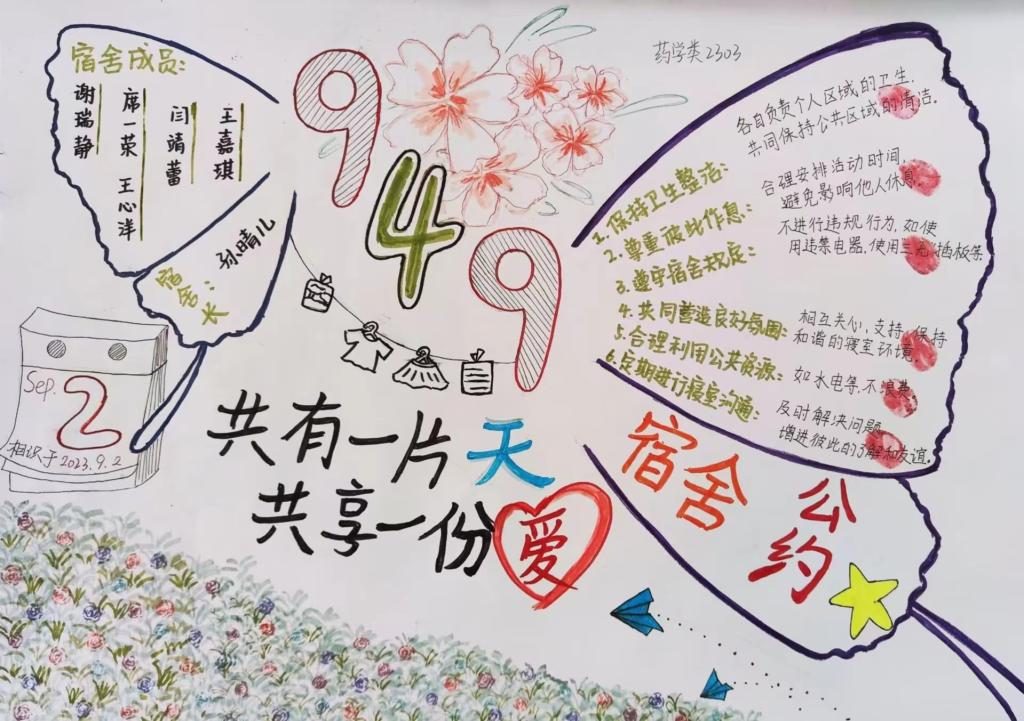 宿舍成员:
谢瑞静
席一荣
王心洋
闫靖蕾
王嘉琪
宿舍长:
孙晴儿
949
药学类2303
1.保持卫生整洁:
各自负责个人区域的卫生.
共同保持公共区域的清洁.
2.尊重彼此作息:
合理安排活动时间,
避免影响他人休息.
3.遵守宿舍规定:
不进行违规行为,如使
用违禁电器,使用三无插板等.
4.共同营造良好氛围:
相互关心,支持,保持
和谐的寝室环境.
5.合理利用公共资源:
如水电等,不浪费.
6.定期进行寝室沟通:
及时解决问题
增进彼此的了解和友谊.
Sep.
2
相识于2023.9.2
共有一片天
共享一份爱
宿舍公约